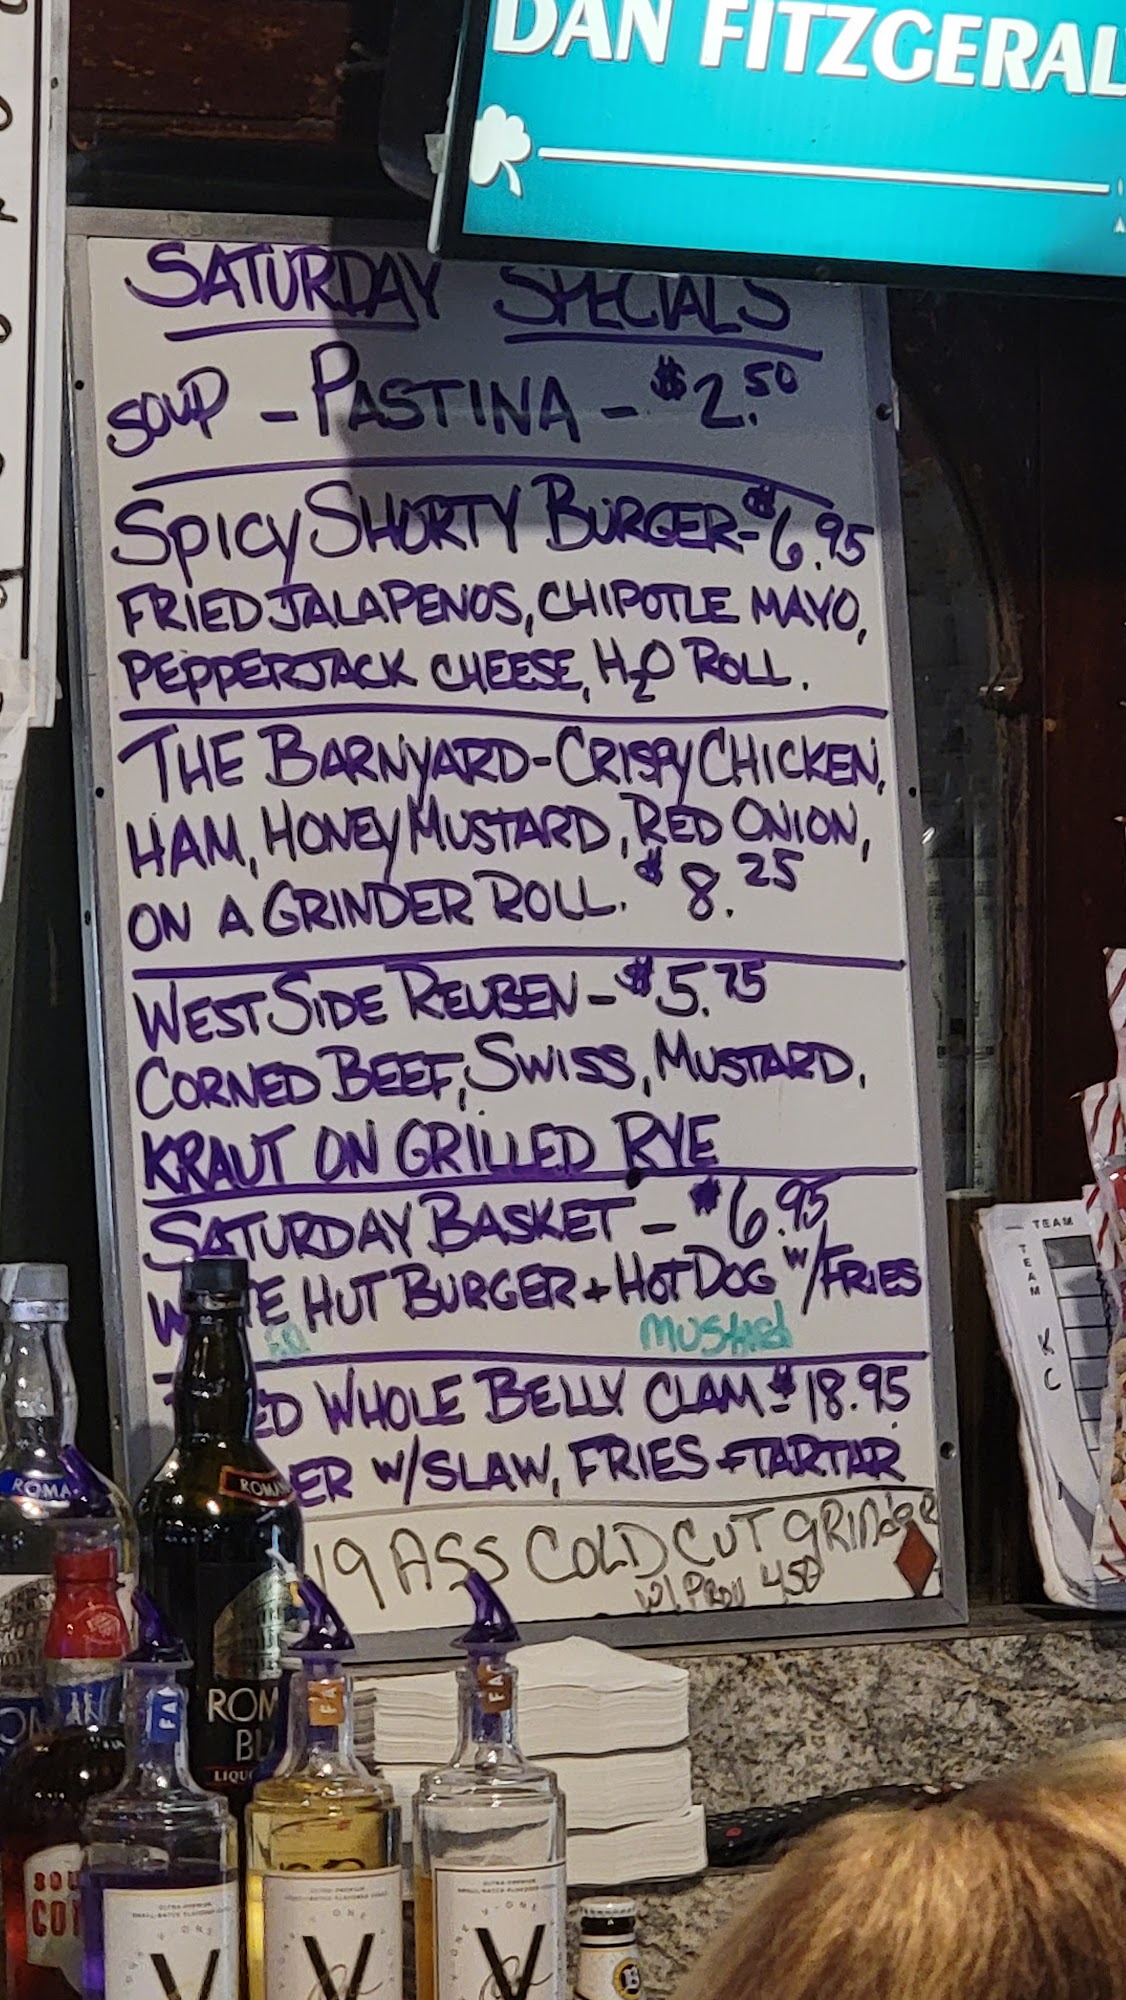 DAN FITZGERAL
SATURDAY SPECIALS
SOUP - PASTINA - $2.50
SPICY SHORTY BURGER - $6.95
FRIED JALAPENOS, CHIPOTLE MAYO,
PEPPERJACK CHEESE, H2O ROLL.
THE BARNYARD - CRISPY CHICKEN,
HAM, HONEY MUSTARD, RED ONION,
ON A GRINDER ROLL. $8.25
WEST SIDE REUBEN - $5.75
CORNED BEEF, SWISS, MUSTARD,
KRAUT ON GRILLED RYE
SATURDAY BASKET - $6.95
HUT BURGER + HOT DOG W/FRIES
MUSTARD
WHOLE BELLY CLAM - $18.95
W/SLAW, FRIES + TARTAR
19 ASS COLD CUT GRINDER
W/ PROV 4.50
TEAM
TEAM
K
C
ROMA
ROMAN
ROM
BL
LIQU
FA
FA
FA
SOU
CO
V
V
V